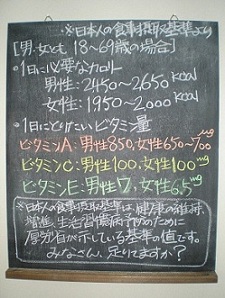 ※日本人の食事摂取基準より
[男・女とも 18〜69歳の場合]
•1日に必要なカロリー
男性:2450〜2650kcal
女性:1950〜2,000kcal
•1日にとりたいビタミン量
ビタミンA:男性850,女性650〜700μg
ビタミンC:男性100,女性100mg
ビタミンE:男性7,女性6.5mg
※日本人の食事摂取基準は、健康の維持、
増進、生活習慣病予防のために
厚労省が示している基準の値です。
みなさん、足りてますか?